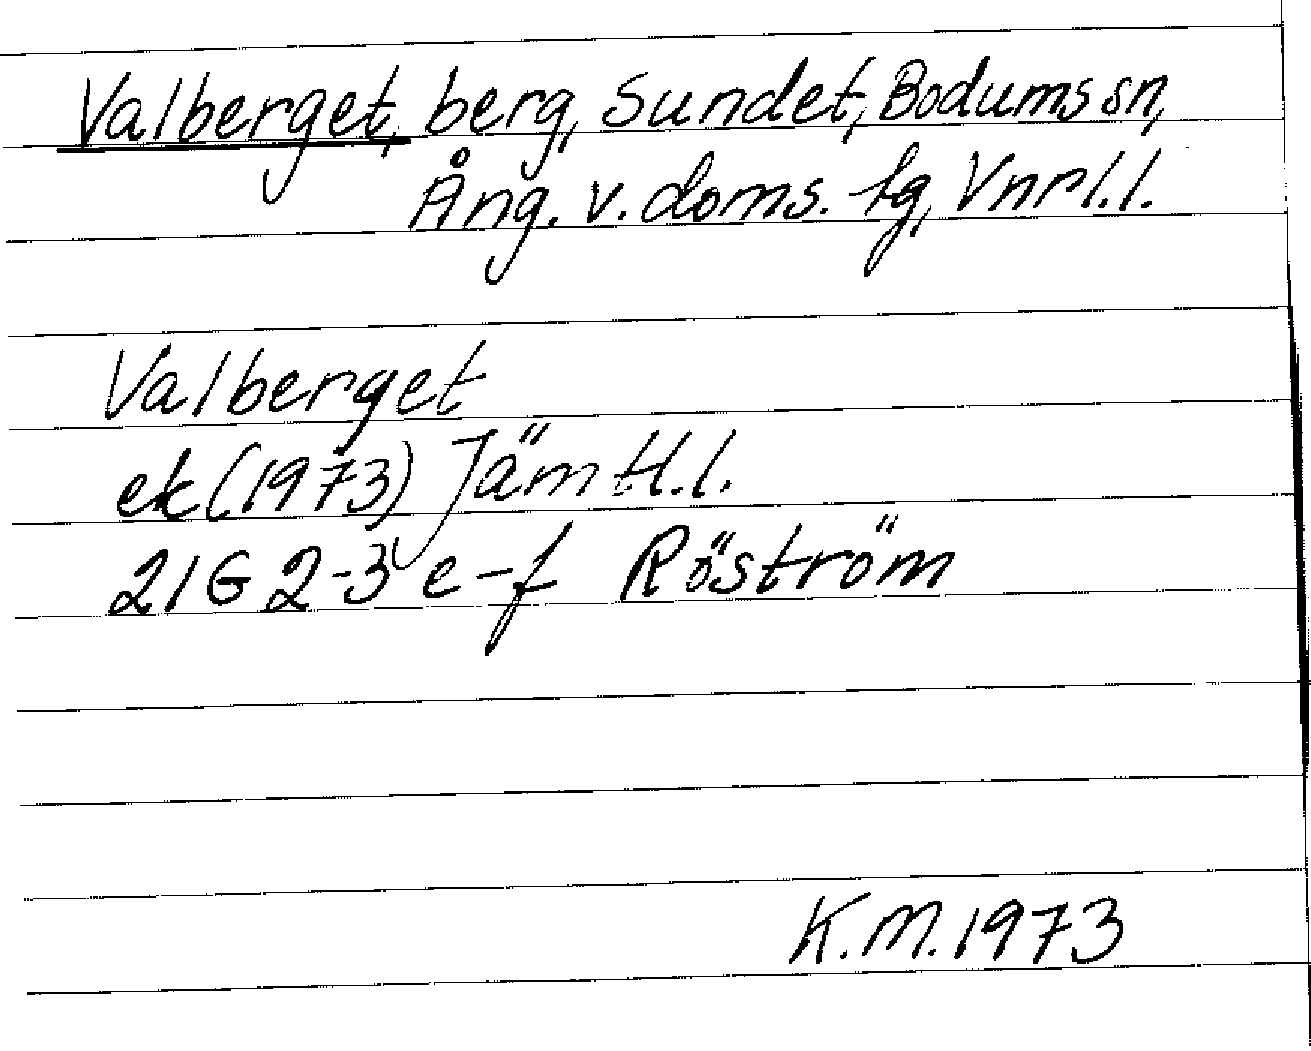 Valberget, berg, Sundet, Bodums sn,
Ång. v. doms. tg, Vnrl. l.
Valberget
ek (1973) Jämtl. l.
21G 2-3 e-f Röström
K.M. 1973